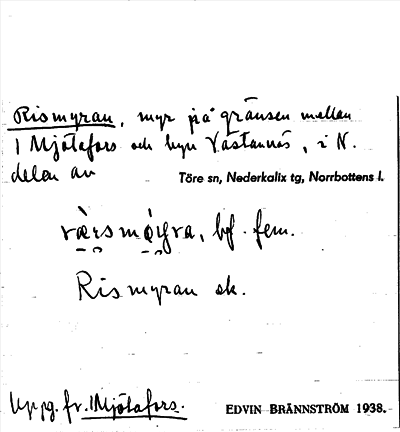 Rismyran, myr på gränsen mellan
1 Mjötafors och byn Västannäs, i N.
delen av Töre sn, Nederkalix tg, Norrbottens l.
bf. fem.
Rismyran ek.
Uppg. fr. 1 Mjötafors. EDVIN BRÄNNSTRÖM 1938.